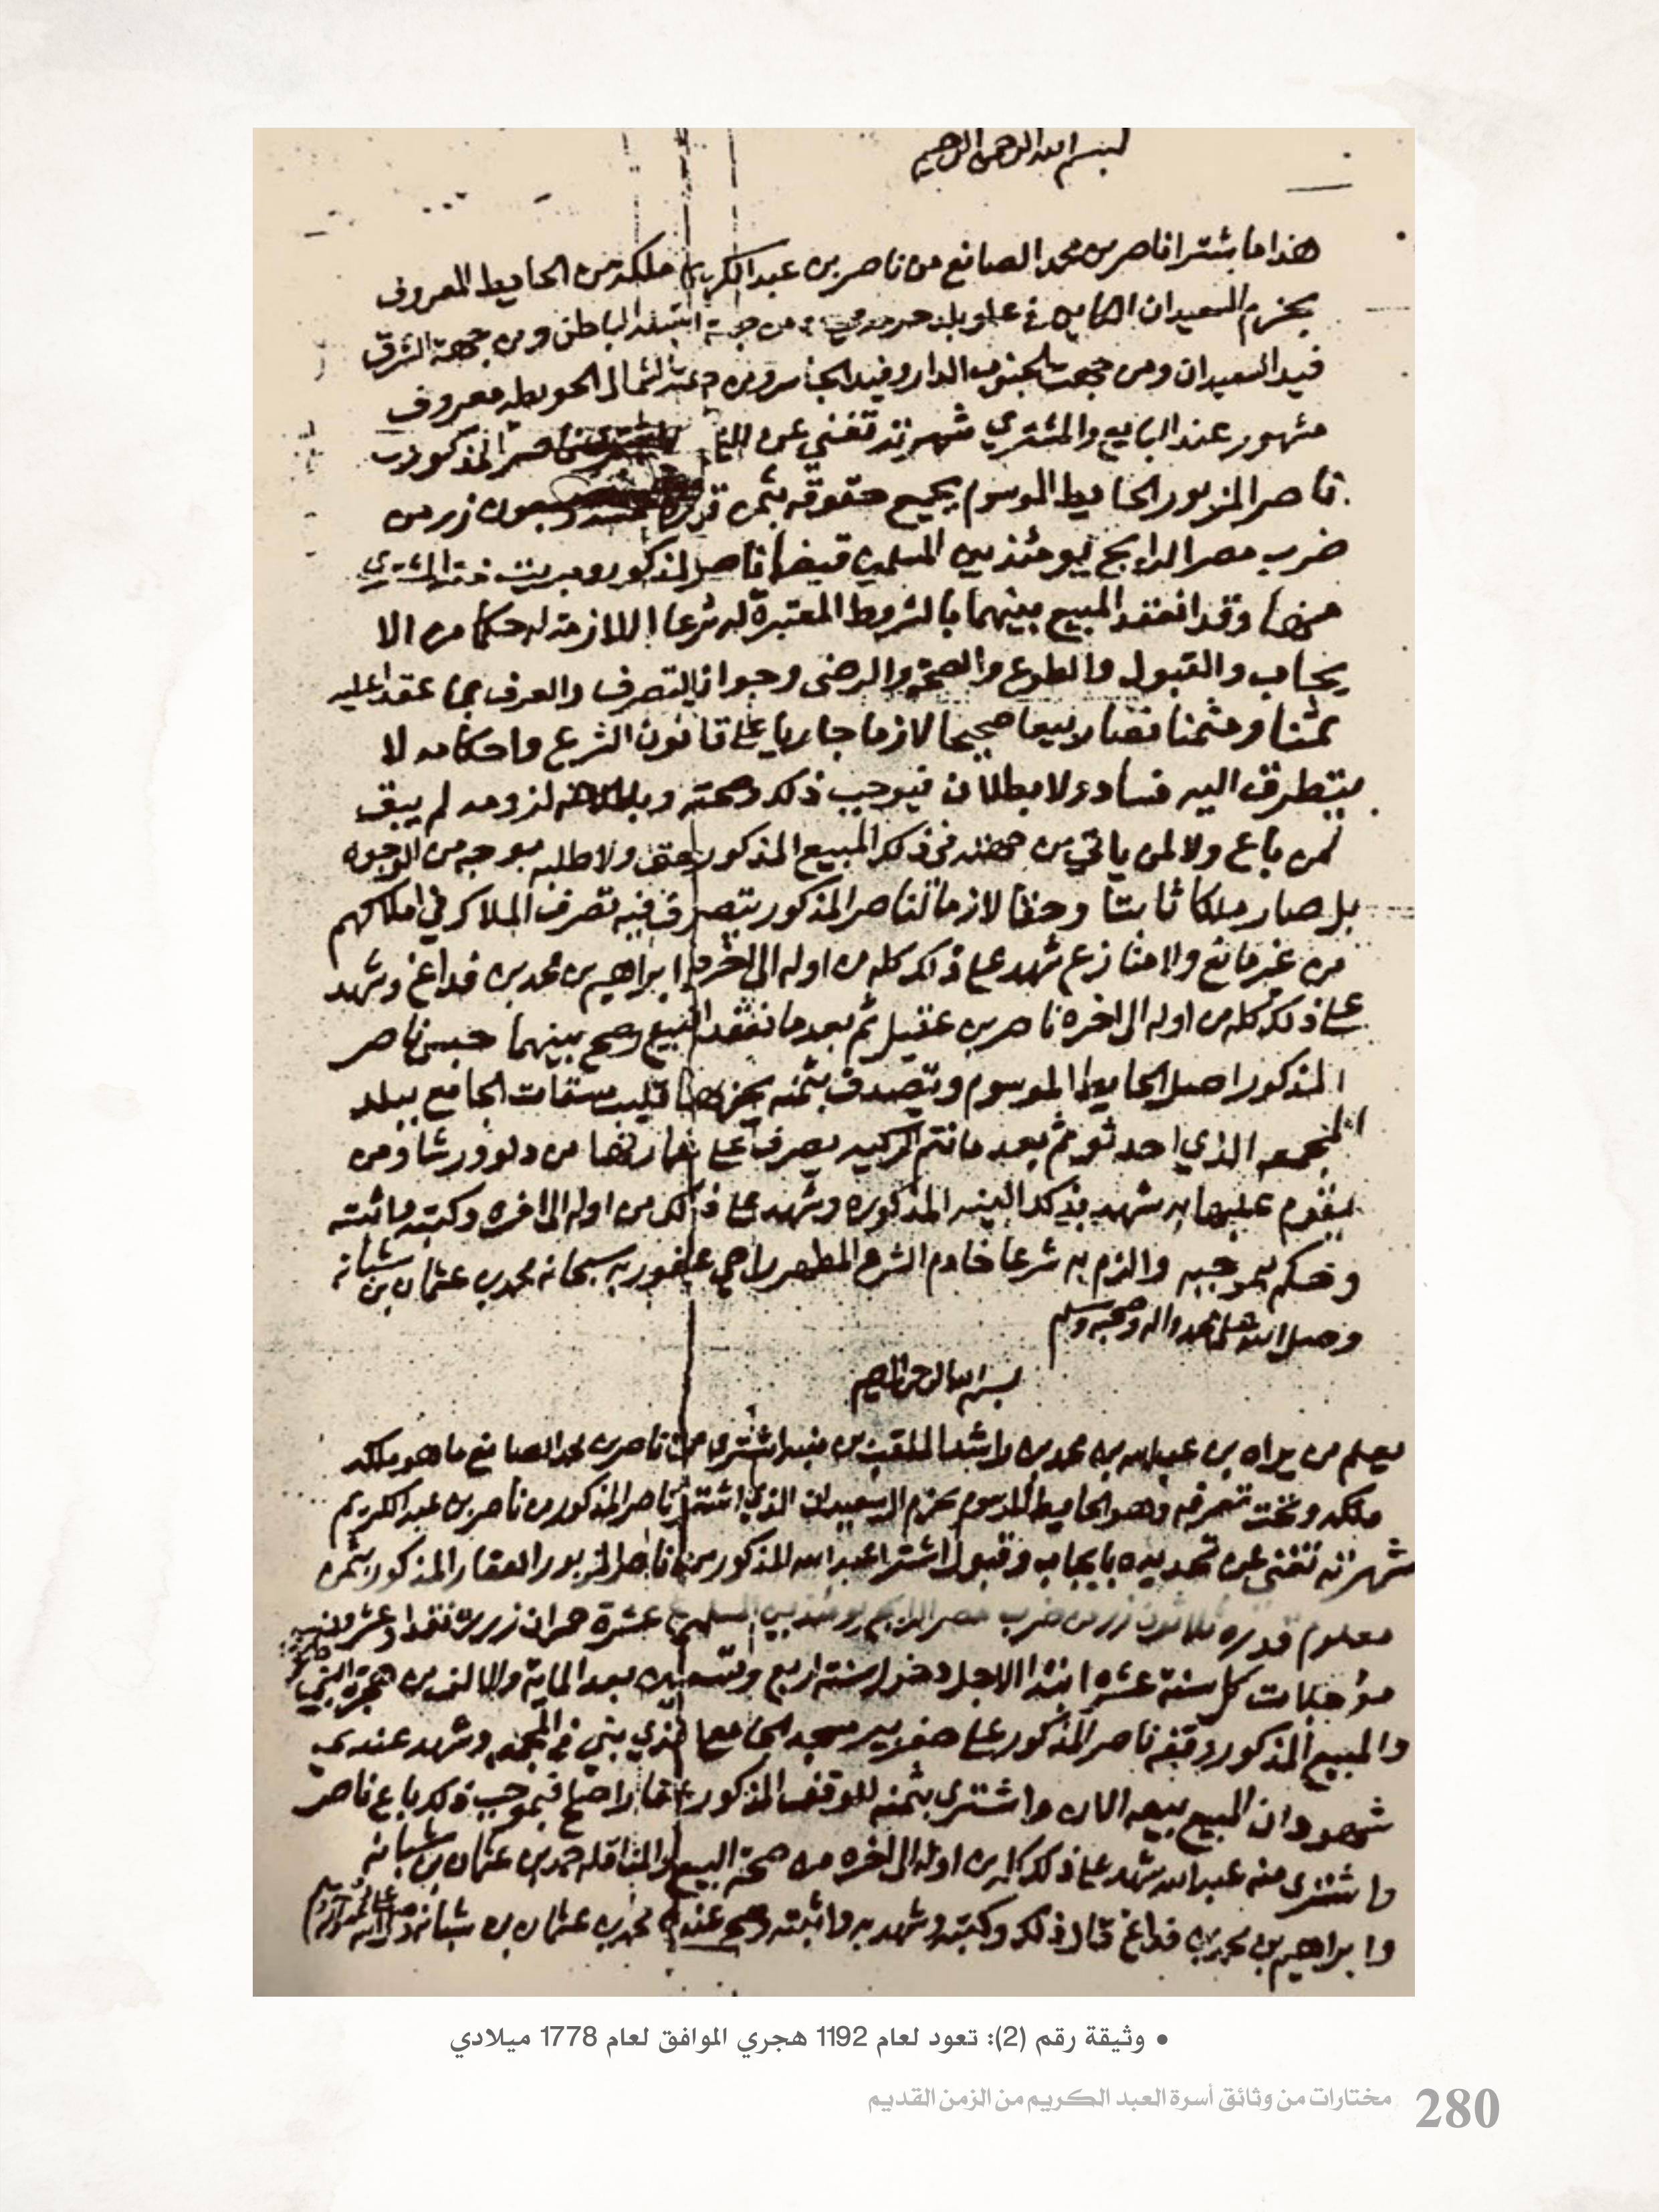 بسم الله الرحمن الرحيم
هذا ما شترا ناصر بن محمد الصانع من ناصر بن عبدالكريم ملكه من الحايط المعروف
بحزم السعيدان الكاين في علو بلد من جهة الباطن ومن جهة الشرق
فيد السعيدان ومن جهت الجنوب الدار وفيد الجاسر ومن جهة الشمال الحويطه معروف
مشهور عند البايع والمشتري شهرته تغني عن المذكور
ناصر المزبور الحايط الموسوم بجميع حقوقه بثمن قدره زر من
ضرب مصر الرايج يومئذ بين المسلمين قبضها ناصر المذكور وبريت ذمة المشتري
منها وقد انعقد المبيع بينهما بالشروط المعتبرة له شرعا اللازمة له حكما من الا
يجاب والقبول والطوع والصحة والرضى وجواز التصرف والعرف بما عقدا عليه
ثمنا ومثمنا فصار بيعا صحيحا لازما جاريا على قانون الشرع واحكامه لا
يتطرق اليه فساد ولا بطلان فبموجب ذلك وصحته لزومه لم يبق
لمن باع ولا لمن ياتي من في ذلك المبيع المذكور حق ولا طلبه بوجه من الوجوه
بل صار ملكا ثابتا وحقا لازما لناصر المذكور يتصرف فيه تصرف الملاك في املاكهم
من غير مانع ولا منازع شهد على ذلك كله من اوله الى اخره ابراهيم بن محمد بن فداغ وشهد
على ذلك كله من اوله الى اخره ناصر بن عقيل ثم بعد ما نعقد البيع وصح بينهما حبس ناصر
المذكور اصل الحايط الموسوم وتصدق بثمنه قليب سقات الجامع ببلد
المجمعه الذي احد ثم بعد ما تتم الركيه يصرف على عمارتها من دلو ورشا ومن
يقوم عليها به شهد بذلك البينه المذكوره وشهد على ذلك من اوله الى اخره وكتبه واثبته
وحكم بموجبه والزم به شرعا خادم الشرع المطهر راجي عفو ربه سبحانه محمد بن عثمان بن شبانه
وصلى الله على محمد واله وصحبه وسلم
بسم الله الرحمن الرحيم
يعلم من يراه بن عبدالله بن محمد بن راشد الملقب بن اشترى من ناصر بن محمد الصانع ما هو ملكه
ملكه وتحت تصرفه وهو الحايط الموسوم بحزم السعيدان الذي اشترا ناصر المذكور من ناصر بن عبدالكريم
شهرته تغني عن تحديده بايجاب وقبول اشترا عبدالله المذكور من ناصر المزبور العقار المذكور بثمن
معلوم قدره ثلاثون زر من ضرب مصر الرايج يومئذ بين المسلمين عشرة حمران زر نقدا وعشرون
مؤجلات كل سنة عشره ابتدا الاجل دخول سنة اربع وتسعين بعد الماية والالف من هجرة النبي
والمبيع المذكور وقفه ناصر المذكور على حفر بير مسجد الجامع الذي بني في المجمعه وشهد عندي
شهود ان المبيع بيعه الان واشترى بثمنه للوقف المذكور عقارا صح فبموجب ذلك باع ناصر
واشترى منه عبدالله شهد على ذلك كله من اوله الى اخره من صحة البيع والمناقله حمد بن عثمان بن شبانه
وابراهيم بن محمد بن فداغ قال ذلك وكتبه وشهد به واثبته وصح عنده محمد بن عثمان بن شبانه وصلى الله على محمد وآله
• وثيقة رقم (2): تعود لعام 1192 هجري الموافق لعام 1778 ميلادي
280 مختارات من وثائق أسرة العبد الكريم من الزمن القديم